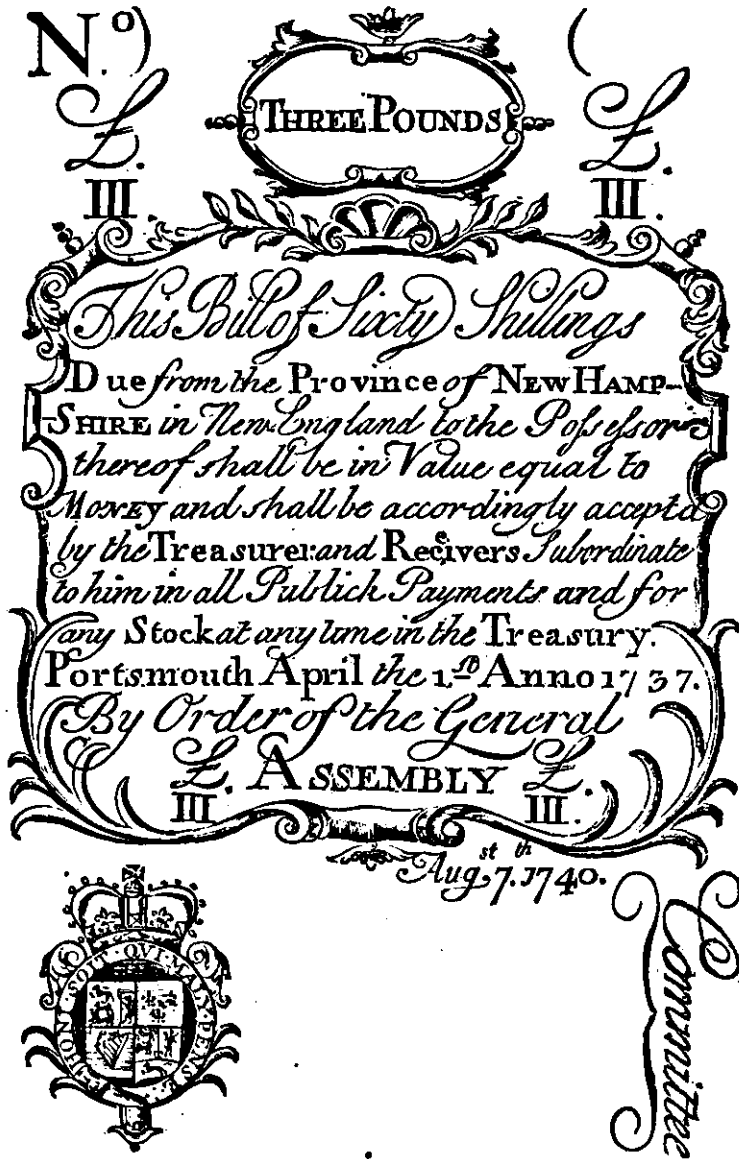 N.º) (
£. £.
III. THREE POUNDS III.
This Bill of Sixty Shillings
Due from the Province of NEW HAMP-
SHIRE in New-England to the Possessor
thereof shall be in Value equal to
MONEY and shall be accordingly acceptd
by the Treasurer and Receivers Subordinate
to him in all Publick Payments and for
any Stock at any time in the Treasury.
Portsmouth April the 1st Anno 1737.
By Order of the General
£. ASSEMBLY £.
III. III.
Augst 7th. 1740.
Committee
HONI·SOIT·QVI·MAL·Y·PENSE